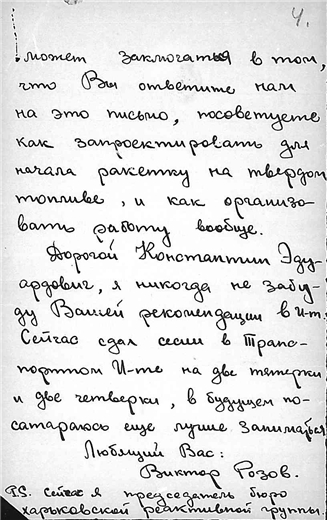 4.
может заключаться в том,
что Вы ответите нам
на это письмо, посоветуете
как запроектировать для
начала ракетку на твердом
топливе, и как организо-
вать работу вообще.
Дорогой Константин Эду-
ардович, я никогда не забу-
ду Вашей рекомендации в И-т.
Сейчас сдал сессии в Транс-
портном И-те на две пятерки
и две четверки, в будущем по-
стараюсь еще лучше заниматься
Любящий Вас:
Виктор Розов.
P.S. Сейчас я председатель бюро
харьковской реактивной группы.